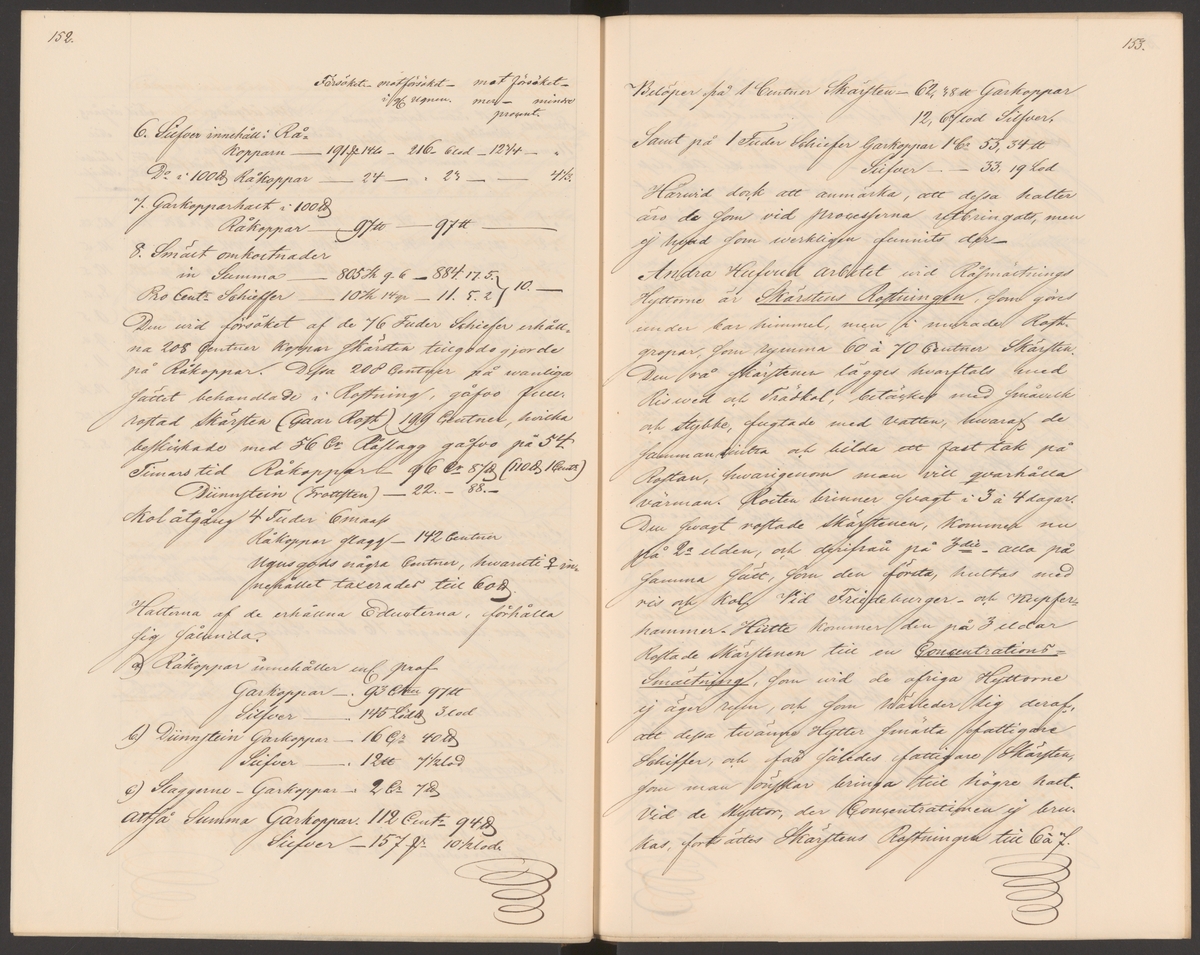 152.
Försöket – mot försöket – mot försöket –
i Ugnen. mer – mindre
procent.
6. Silfver innehåll i Rå-
kopparn — 191 14½ – 216 – 6 lod – 12¾ –
Do i 100 ℔ Råkoppar — 24 — 23 — — 4½.
7. Garkopparhalt i 100 ℔
Råkoppar — 97 ℔ — 97 ℔ —
8. Smält omkostnader
in Summa — 805 9. 6 – 884. 17. 5.
Pro Cent: Schieffer — 10 14 gr – 11. 5. 2 } 10. —
Den vid försöket af de 76 Fuder Schiefer erhåll-
na 208 Centner Koppar skärsten tillgodogjorde
på Råkoppar. Dessa 208 Centner på vanliga
sättet behandlade i Rostning, gåfvo full-
rostad Skärsten (Gaar Rost) 199 Centner, hvilka
beskickade med 56 Cr Råslagg gåfvo på 54
Timars tid Råkoppar — 96 Cr 87 ℔ (110 ℔ 1 Centr)
Dünnstein (Trottsten) — 22. – 88. –
Kol åtgång 4 Fuder 6 maass
Råkoppar slagg — 142 Centner
Ugnsgods några Centner, hvaruti ♀ in-
nehållet taxerades till 60 ℔
Halterna af de erhållna Educterna, förhålla
sig sålunda.
a) Råkoppar innehåller enl prof
Garkoppar —. 93 Cntr 97 ℔
Silfver —. 145 Löd 3 lod
b) Dünnstein Garkoppar —. 16 Cr 40 ℔
Silfver —. 12 ℔ 7½ lod
c) Slaggerne – Garkoppar –. 2 Cr 7 ℔
Altså Summa Garkoppar. 112 Centr 94 ℔
Silfver — 157 10½ lod
153.
Belöper på 1 Centner Skärsten – 62,38 ℔ Garkoppar
12,67 lod Silfver.
Samt på 1 Fuder Schiefer Garkoppar 1 Cr 53,34 ℔
Silfver — — 33.19 lod
Härvid dock att anmärka, att dessa halter
äro de som vid processerna utbringats, men
ej hvad som werkligen funnits der –
Andra Hufvud arbetet vid Råsmältnings
Hyttorne är Skärstens Rostningen, som göres
under bar himmel, men i murade Rost-
gropar, som rymma 60 à 70 Centner Skärsten.
Den rå Skärstenen lägges hvarftals med
Risved och Träkol, betäckes med småkol
och Stybbe, fugtade med vatten, hvaraf de
sammansintra och bilda ett fast tak på
Rostan, hvarigenom man vill qvarhålla
värman. Rosten brinner svagt i 3 à 4 dagar.
Den svagt rostade Skärstenen, kommer nu
på 2a elden, och derifrån på 3die – alla på
samma sätt, som den första, hvittas med
ris och Kol. Vid Friedeburger – och Kupfer-
hammer – Hütte kommer den på 3 eldar
Rostade Skärstenen till en Concentrations-
Smältning, som vid de öfriga Hyttorne
ej äger rum, och som härleder sig deraf,
att dessa tvänne Hyttor smälta fattigare
Schiffer, och får således fattigare Skärsten,
som man önskar bringa till högre halt.
Vid de Hyttor, der Concentrationen ej bru-
kas, fortsättes Skärstens Rostningen till 6 à 7.